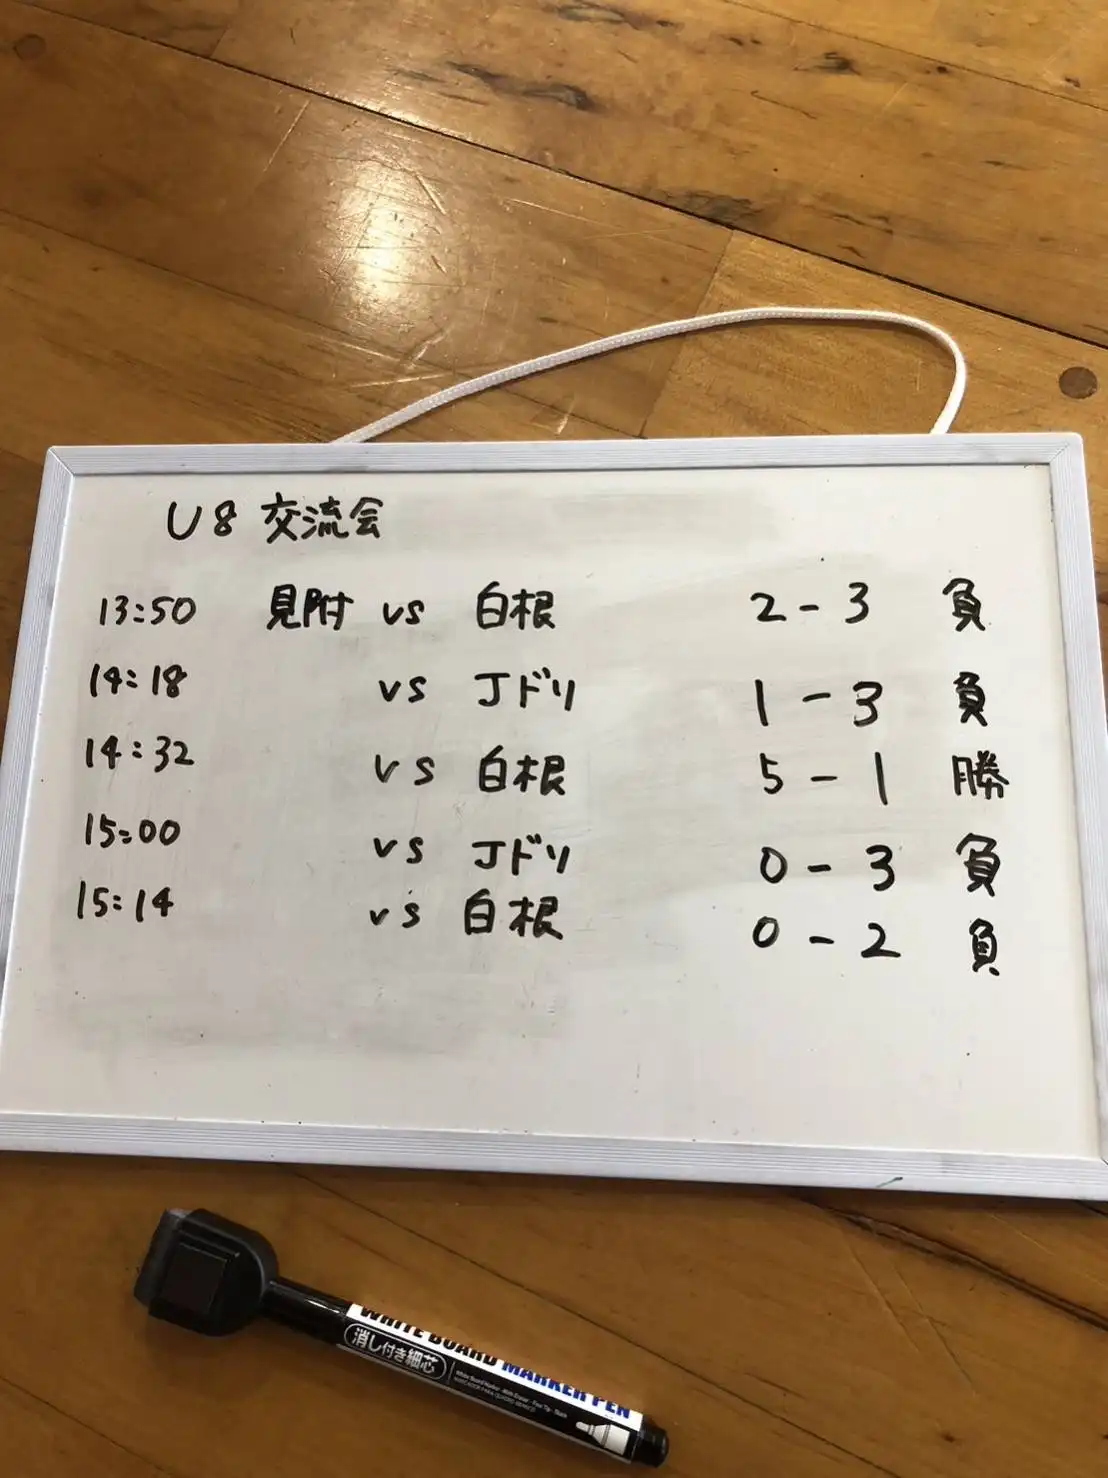 U8 交流会
13:50 見附 vs 白根 2-3 負
14:18 vs Jドリ 1-3 負
14:32 vs 白根 5-1 勝
15:00 vs Jドリ 0-3 負
15:14 vs 白根 0-2 負
WHITE BOARD MARKER PEN
消し付き細芯